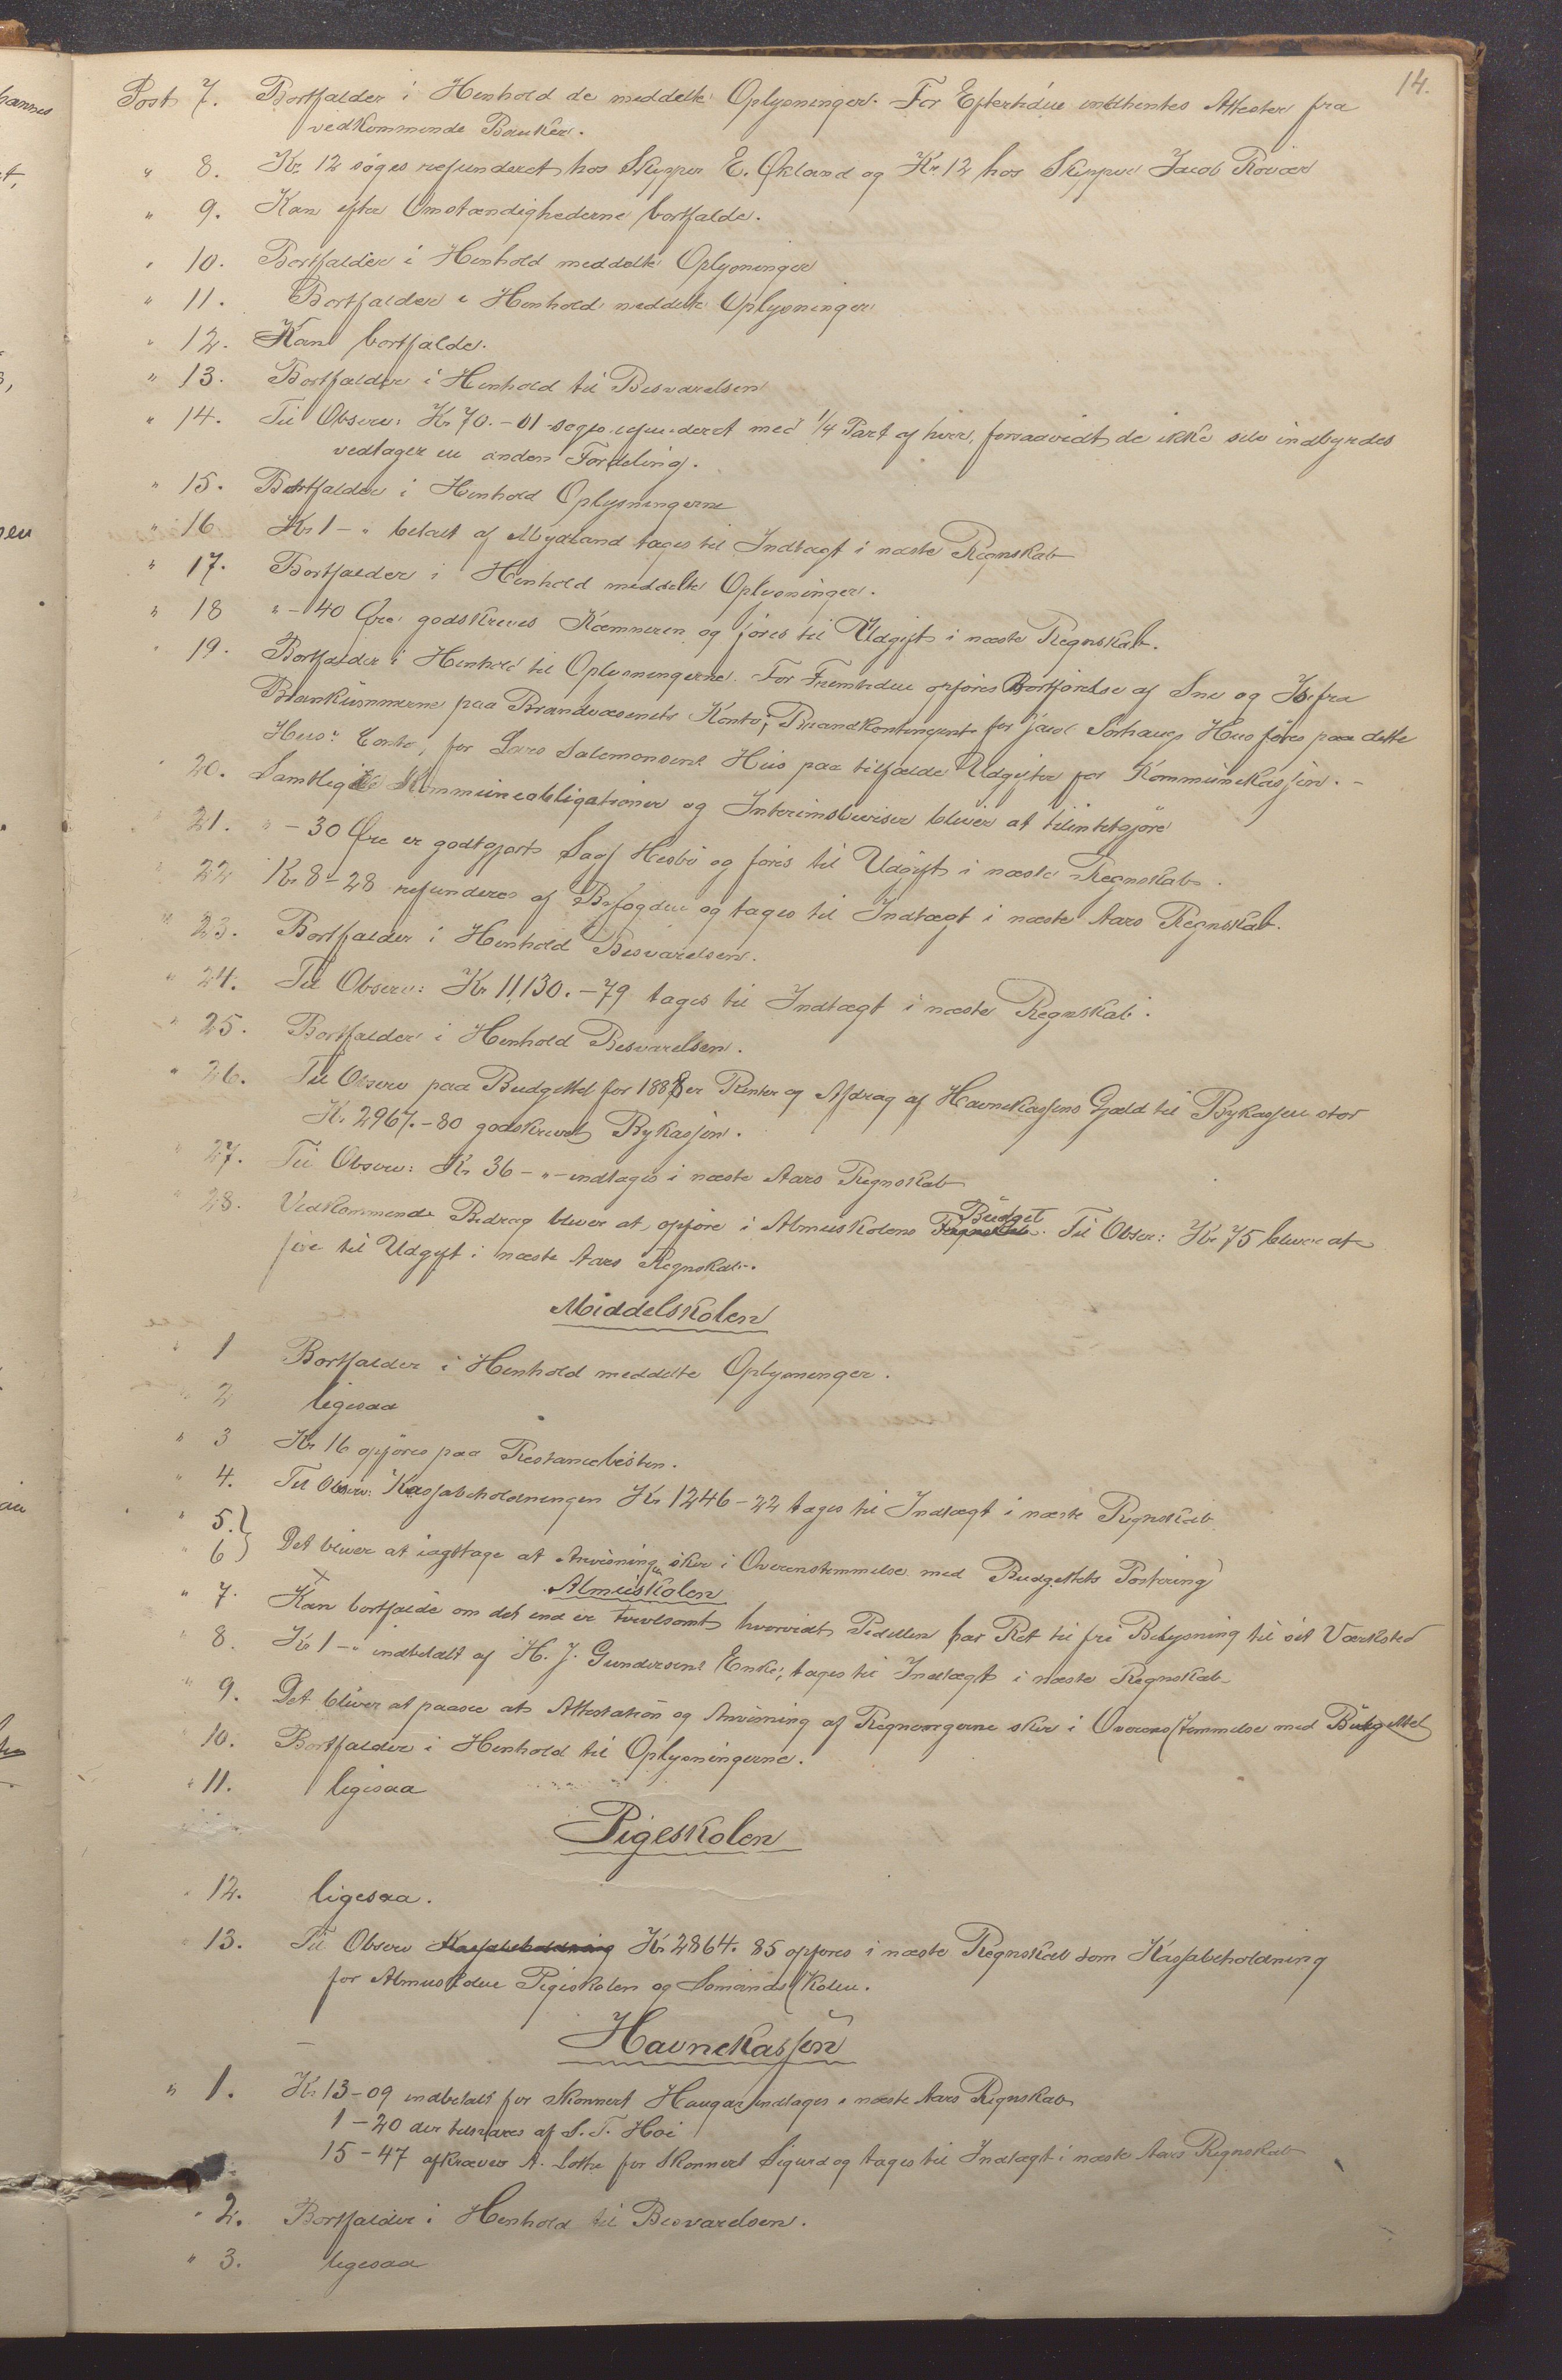 14.
Post 7. Bortfalder i Henhold de meddelte Oplysninger. For Eftertiden indhentes Attester fra
vedkommende Banker.
" 8. Kr. 12 søges refunderet hos Skipper E. Økland og Kr 12 hos Skipper Jacob Rövær
" 9. Kan efter Omstændighederne bortfalde.
" 10. Bortfalder i Henhold meddelte Oplysninger
" 11. Bortfalder i Henhold meddelte Oplysninger
" 12. Kan bortfalde.
" 13. Bortfalder i Henhold til Besvarelsen
" 14. Til Observ: Kr 70.-01 søges refunderet med 1/4 Part af hver, forsaavidt de ikke selv indbyrdes
vedtager en anden Fordeling.
" 15. Bortfalder i Henhold Oplysningerne
" 16 Kr 1 - " betalt af Mydland tages til Indtægt i næste Regnskab
" 17. Bortfalder i Henhold meddelte Oplysninger.
" 18 " - 40 Øre godskrives Kæmneren og føres til Udgift i næste Regnskab.
" 19. Bortfalder i Henhold til Oplysningerne. For Fremtiden opføres Bortførelse af Sne og Is fra
Brankummerne paa Brandvæsenets Konto; Brandkontingent for Jacob Sörhaugs Hus føres paa dette
Hus' Conto, for Lars Salemonsens Hus paa tilfælde Udgifter for Kommunekassen. -
" 20. Samtlige Kommuneobligationer og Interimsbeviser bliver at tilintetgjöre
" 21. " - 30 Øre er godtgjort Sagf Hesbö og føres til Udgift i næste Regnskab.
" 22 Kr. 8-28 refunderes af Byfogden og tages til Indtægt i næste Aars Regnskab.
" 23. Bortfalder i Henhold Besvarelsen.
" 24. Til Observ: Kr 11,130.-79 tages til Indtægt i næste Regnskab.
" 25. Bortfalder i Henhold Besvarelsen.
" 26. Til Observ paa Budgettet for 1888 er Renter og Afdrag af Havnekassens Gjæld til Bykassen stor
Kr. 2967.-80 godskrevet Bykassen.
" 27. Til Observ: Kr 36 - " - indtages i næste Aars Regnskab
" 28. Vedkommende Bidrag bliver at opføre i Almuskolens Regnskab Budget. Til Obser: Kr 75 bliver at
føre til Udgift i næste Aars Regnskab.
Middelskolen
" 1 Bortfalder i Henhold meddelte Oplysninger.
" 2 ligesaa
" 3 Kr 16 opføres paa Restancelisten.
" 4. Til Observ: Kassabeholdningen Kr 1246-22 tages til Indtægt i næste Regnskab
" 5.}
" 6 } Det bliver at iagttage at Anvisningen sker i Overenstemmelse med Budgettets Postering
Almuskolen
" 7. Kan bortfalde om det end er tvivlsomt hvorvidt Pedellen har Ret til fri Belysning til sit Værksted
" 8. Kr 1 - " indbetalt af H. J. Gundersens Enke, tages til Indtægt i næste Regnskab
" 9. Det bliver at paasee at Attestation og Anvisning af Regningerne sker i Overensstemmelse med Budgettet
" 10. Bortfalder i Henhold til Oplysningerne.
" 11. ligesaa
Pigeskolen
" 12. ligesaa.
" 13. Til Observ Kassabeholdning Kr 2864.85 opføres i næste Regnskab som Kassabeholdning
for Almuskolen Pigeskolen og Sömandsskolen.
Havnekassen
" 1. Kr 13-09 indbetalt for Skonnert Haugar indtages i næste Aars Regnskab
1-20 der tilsvares af S. T. Hoi
15-47 afkræves A. Lothe for Skonnert Sigurd og tages til Indtægt i næste Aars Regnskab
" 2. Bortfalder i Henhold til Besvarelsen.
" 3. ligesaa